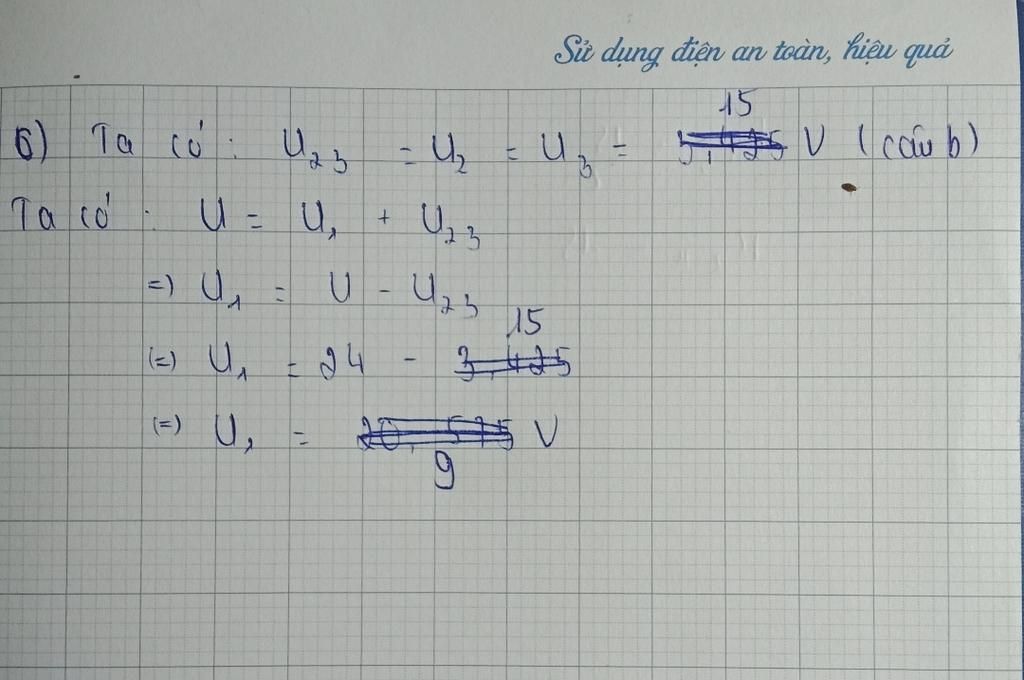 Sử dụng điện an toàn, hiệu quả
6) Ta có: U23 = U2 = U3 = 15 V (câu b)
Ta có: U = U1 + U23
=) U1 = U - U23
(=) U1 = 24 - 15
(=) U1 = 9 V